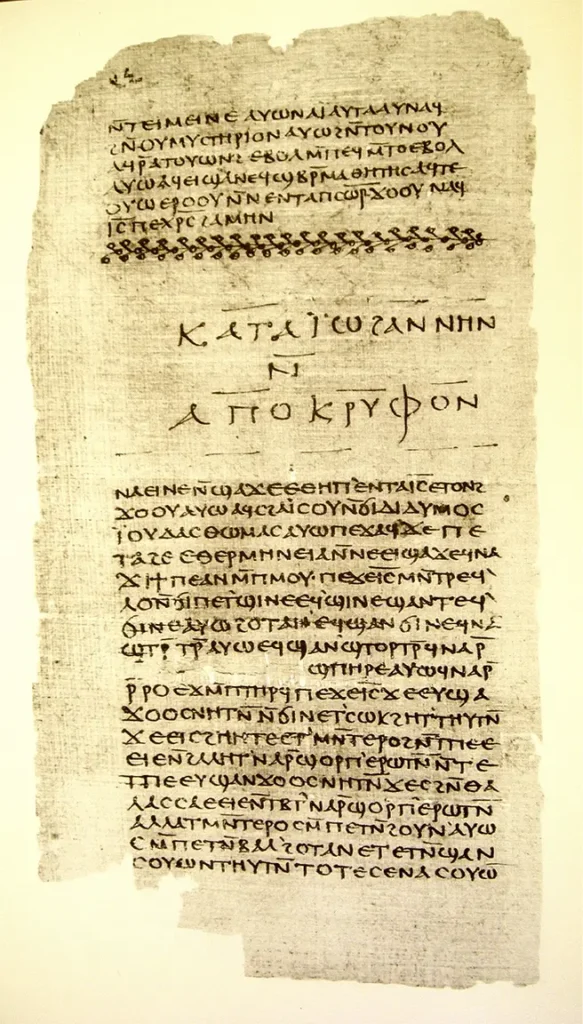 ⲛ̄ⲧⲉⲓⲙⲉⲓⲛⲉ ⲁⲩⲱ ⲛⲁⲓ ⲁⲩⲧⲁⲁⲩ ⲛⲁϥ
ϩⲛ̄ⲟⲩⲙⲩⲥⲧⲏⲣⲓⲟⲛ ⲁⲩⲱ ϩⲛ̄ⲧⲟⲩⲛⲟⲩ
ⲁϥⲣ̄ⲁⲧⲟⲩⲱⲛϩ ⲉⲃⲟⲗ ⲙ̄ⲡⲉϥⲙ̄ⲧⲟ ⲉⲃⲟⲗ
ⲁⲩⲱ ⲁϥⲉⲓ ϣⲁ ⲛⲉϥϣⲃⲣ̄ⲙⲁⲑⲏⲧⲏⲥ ⲁϥⲧⲉ
ⲟⲩⲱ ⲉⲣⲟⲟⲩ ⲛ̄ⲛⲉⲛⲧⲁⲡⲥⲱⲣ̄ ϫⲟⲟⲩ ⲛⲁϥ
ⲓ̅ⲥ̅ ⲡⲉⲭ̅ⲣ̅ⲥ̅ ϩⲁⲙⲏⲛ
ⲕⲁⲧⲁ ⲓ̈ⲱϩⲁⲛⲛⲏⲛ
ⲛ̄
ⲁⲡⲟⲕⲣⲩⲫⲟⲛ
ⲛⲁⲉⲓ ⲛⲉ ⲛ̄ϣⲁϫⲉ ⲉⲑⲏⲡ ⲉⲛⲧⲁⲓ̅ⲥ̅ ⲉⲧⲟⲛϩ
ϫⲟⲟⲩ ⲁⲩⲱ ⲁϥⲥϩⲁⲓ̈ⲥⲟⲩ ⲛ̄ϭⲓ ⲇⲓⲇⲩⲙⲟⲥ
ⲓ̈ⲟⲩⲇⲁⲥ ⲑⲱⲙⲁⲥ ⲁⲩⲱ ⲡⲉϫⲁϥ ϫⲉ ⲡⲉ
ⲧⲁϩⲉ ⲉⲑⲉⲣⲙⲏⲛⲉⲓⲁ ⲛ̄ⲛⲉⲉⲓϣⲁϫⲉ ϥⲛⲁ
ϫⲓϯⲡⲉ ⲁⲛ ⲙ̄ⲡⲙⲟⲩ ⲡⲉϫⲉⲓ̅ⲥ̅ ⲙⲛ̄ⲧⲣⲉϥ
ⲗⲟ ⲛ̄ϭⲓ ⲡⲉⲧϣⲓⲛⲉ ⲉϥϣⲓⲛⲉ ϣⲁⲛⲧⲉϥ
ϭⲓⲛⲉ ⲁⲩⲱ ϩⲟⲧⲁⲛ ⲉϥϣⲁⲛϭⲓⲛⲉ ϥⲛⲁ
ϣⲧⲣ̄ⲧⲣ̄ ⲁⲩⲱ ⲉϥϣⲁⲛϣⲧⲟⲣⲧⲣ̄ ϥⲛⲁⲣ̄
ϣⲡⲏⲣⲉ ⲁⲩⲱ ϥⲛⲁⲣ̄
ⲣ̄ⲣⲟ ⲉϫⲙ̄ ⲡⲧⲏⲣϥ ⲡⲉϫⲉⲓ̅ⲥ̅ ϫⲉ ⲉⲩϣⲁ
ϫⲟⲟⲥ ⲛⲏⲧⲛ̄ ⲛ̄ϭⲓ ⲛⲉⲧⲥⲱⲕ ϩⲏⲧ ⲑⲏⲩⲧⲛ̄
ϫⲉ ⲉⲓⲥϩⲏⲏⲧⲉ ⲉⲧⲙⲛ̄ⲧⲉⲣⲟ ϩⲛ̄ ⲧⲡⲉ ⲉ
ⲉⲓⲉ ⲛ̄ϩⲁⲗⲏⲧ ⲛⲁⲣ̄ϣⲟⲣⲡ ⲉⲣⲱⲧⲛ̄ ⲛ̄ⲧⲉ
ⲧⲡⲉ ⲉⲩϣⲁⲛϫⲟⲟⲥ ⲛⲏⲧⲛ̄ ϫⲉ ⲥϩⲛ̄ ⲑⲁ
ⲗⲁⲥⲥⲁ ⲉⲉⲓⲉ ⲛ̄ⲧⲃⲧ ⲛⲁⲣ̄ϣⲟⲣⲡ ⲉⲣⲱⲧⲛ̄
ⲁⲗⲗⲁ ⲧⲙⲛ̄ⲧⲉⲣⲟ ⲥⲙ̄ⲡⲉⲧⲛ̄ϩⲟⲩⲛ ⲁⲩⲱ
ⲥⲙ̄ⲡⲉⲧⲛ̄ⲃⲁⲗ ϩⲟⲧⲁⲛ ⲉⲧⲉⲧⲛ̄ϣⲁⲛ
ⲥⲟⲩⲱⲛ ⲑⲏⲩⲧⲛ̄ ⲧⲟⲧⲉ ⲥⲉⲛⲁⲥⲟⲩⲱ